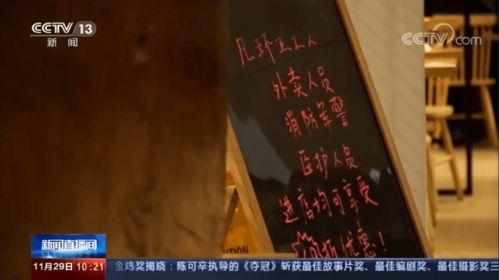 CCTV 13
新闻
CCTV.com
凡环卫工人
外卖人员
消防军警
医护人员
进店均可享受
折优惠！
CAUTION
新闻直播间
11月29日 10:21
金鸡奖揭晓：陈可辛执导的《夺冠》斩获最佳故事片奖、最佳编剧奖、最佳摄影奖